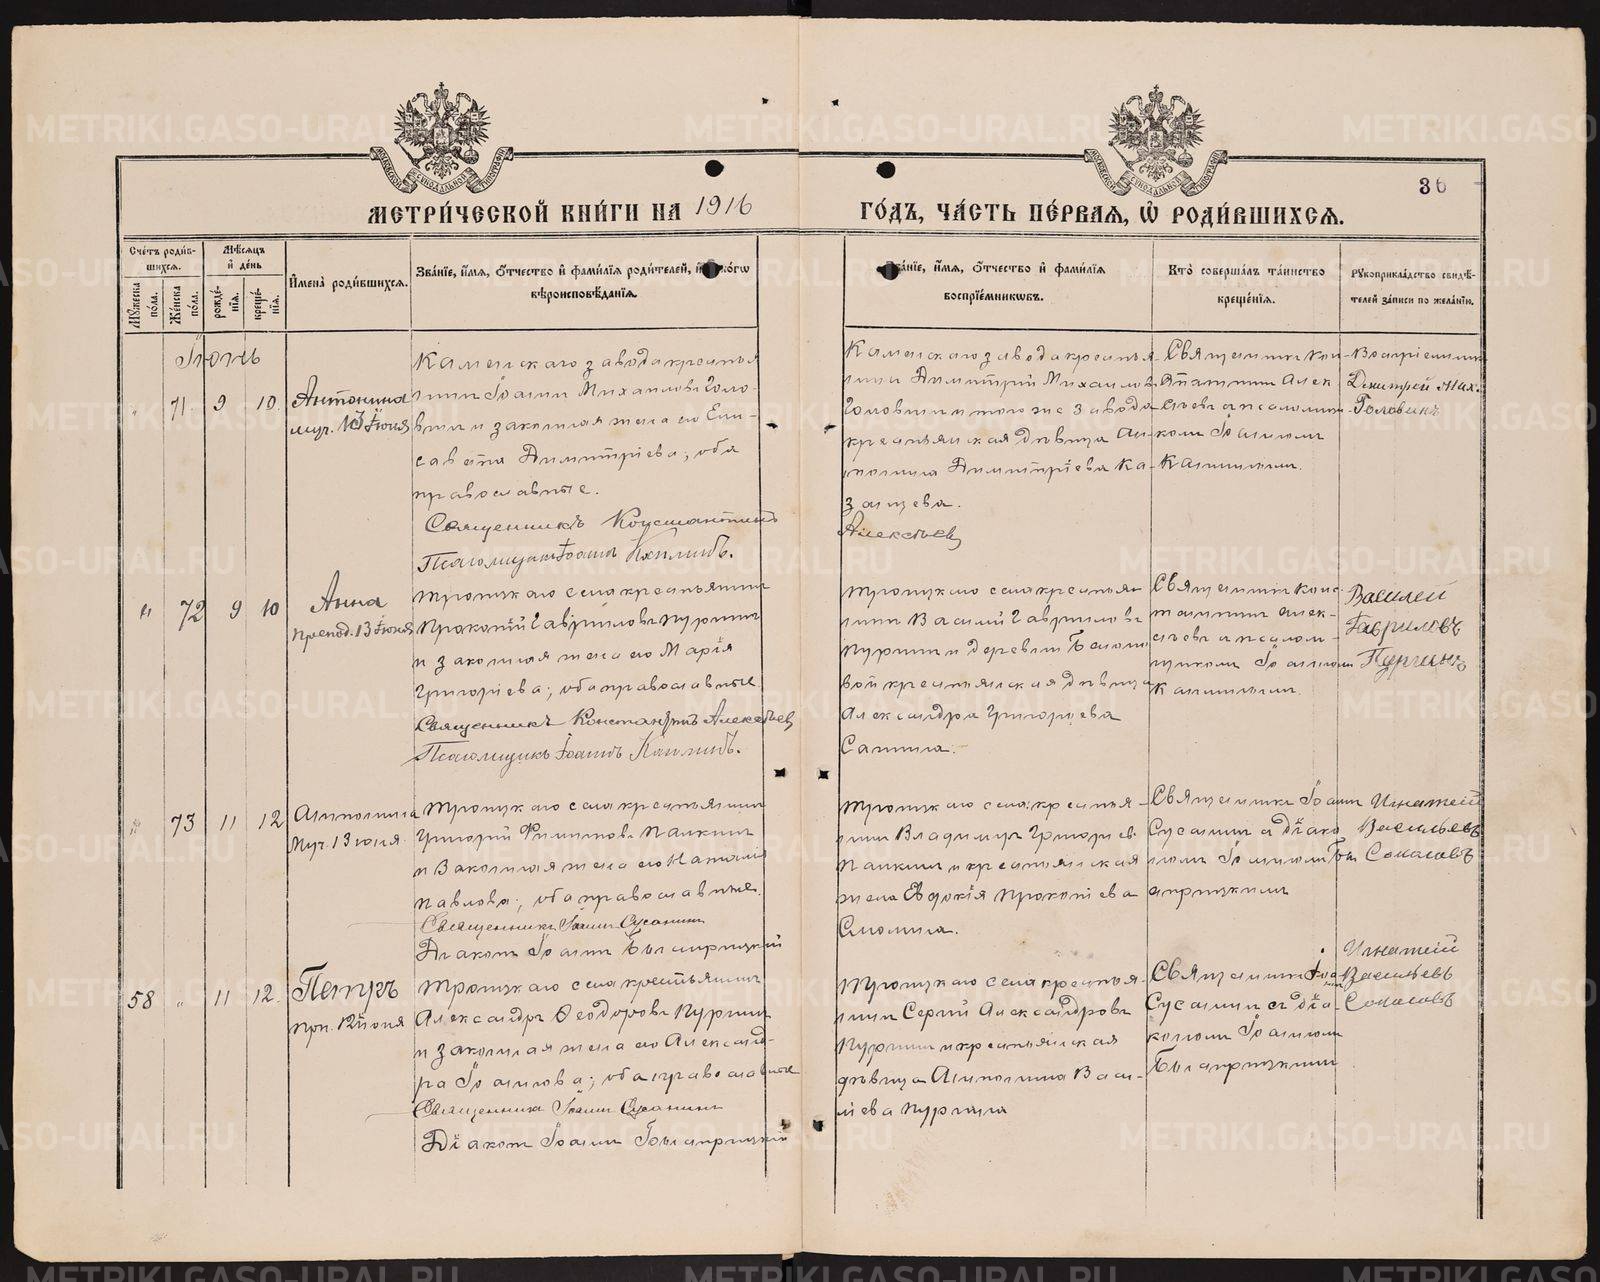 МЕТРИ́ЧЕСКОЙ КНИ́ГИ НА 1916
ГО́ДЪ, ЧА́СТЬ ПЕ́РВАЯ, Ѡ҆ РОДИ́ВШИХСЯ.
36
Сче́тъ роди́в-
шихся.
Мѣ́сяцъ
и҆ де́нь
Мꙋ́жеска по́ла.
Же́нска по́ла.
рожде́нїѧ.
креще́нїѧ.
И҆мена̀ роди́вшихся.
Зва́нїе, и҆́мѧ, ѻ҆́тчество и҆ фами́лїѧ роди́телей, и҆
вѣроисповѣ́данїѧ.
и҆́мѧ, ѻ҆́тчество и҆ фами́лїѧ
воспрїе́мникѡвъ.
Кто̀ соверша́лъ та́инство
креще́нїѧ.
Рꙋкоприкла́дство свидѣ́-
телей за́писи по жела́нїю.
Іюнь
71 9 10
Антонина
муч. 13 Іюня
Каменскаго завода крестья
нинъ Іоаннъ Михаиловъ Голо-
винъ и законная жена его Ели-
савета Димитріева, оба
православные.
Священникъ Константинъ
Псаломщикъ Іоаннъ
Каменскаго завода крестья-
нинъ Димитрій Михаиловъ
Головинъ и того же завода
крестьянская дѣвица Ан-
тонина Димитріева Ка-
занцева.
Алексѣевъ
Священникъ Кон-
стантинъ Алек
сѣевъ и псаломщи-
комъ Іоанномъ
Воспріемникъ
Дмитрей Мих.
Головинъ
" 72 9 10
Анна
Препод. 13 Іюня
Троицкаго села крестьянинъ
Прокопій Гавріиловъ Пургинъ
и законная жена его Марія
Григоріева; оба православные.
Священникъ Константинъ Алексѣевъ
Псаломщикъ Іоаннъ
Троицкаго села крестьян
нинъ Василій Гавриловъ
Пургинъ и деревни
вой крестьянская дѣвица
Александра Григоріева
Санина.
Священникъ Конс-
тантинъ Алек-
сѣевъ и псалом-
щикомъ Іоанномъ
Василей
Гавриловъ
Пургинъ
73 11 12
Антонина
Муч. 13 іюня
Троицкаго села крестьянинъ
Григорій Филиповъ Панкинъ
и законная жена его Наталія
Павлова; оба православные.
Священникъ Іоаннъ Сусанинъ
Діаконъ Іоаннъ
Троицкаго села крестья-
нинъ Владимиръ Григорьевъ
Панкинъ и крестьянская
жена Евдокія Прокопіева
Смолина.
Священникъ Іоаннъ
Сусанинъ и діако
номъ Іоанномъ
Игнатей
Васильевъ
Соколовъ
58 " 11 12.
Петръ
прп. 12 іюня
Троицкаго села крестьянинъ
Александръ Ѳеодоровъ Пургинъ
и законная жена его Александ-
ра Іоаннова; оба православные
Священникъ Іоаннъ Сусанинъ
Діаконъ Іоаннъ
Троицкаго села крестья-
нинъ Сергій Александровъ
Пургинъ и крестьянская
дѣвица Антонина Васи-
лiева Пургина
Священникъ Іоа
Сусанинъ съ діа-
кономъ Іоанномъ
Игнатей
Васильевъ
Соколовъ
METRIKI.GASO-URAL.RU